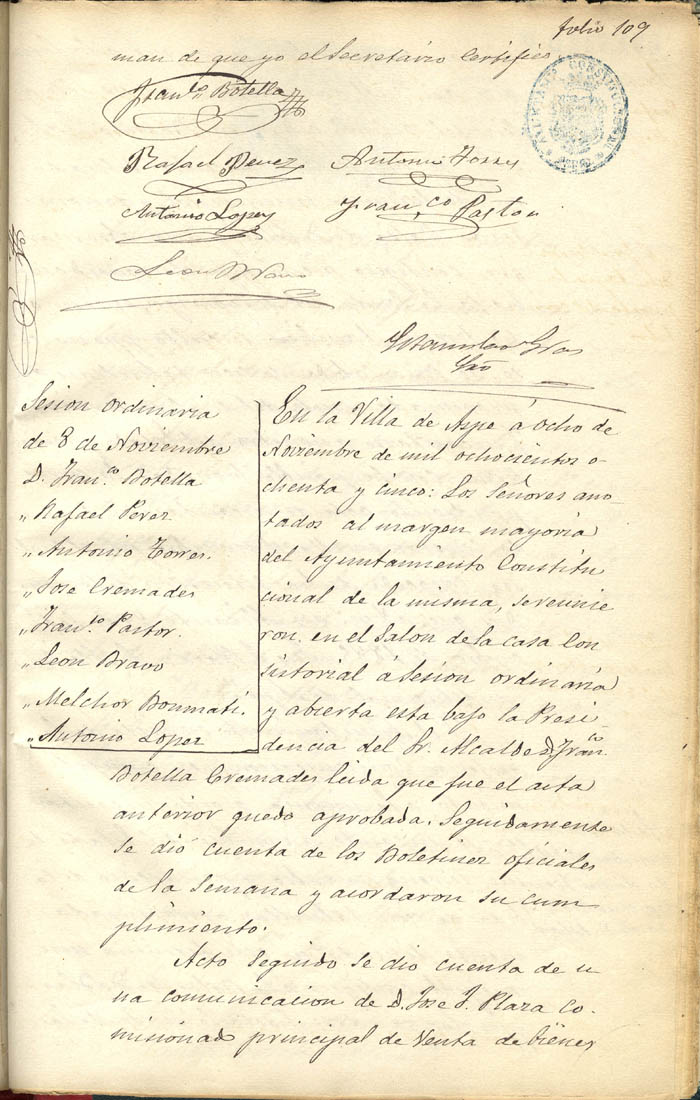 folio 109
man de que yo el Secretario Certifico
Fran.co Botella
Rafael Perez Antonio Torres
Antonio Lopez Fran.co Pastor
Leon Bravo
Sesion ordinaria
de 8 de Noviembre
D. Fran.co Botella
„ Rafael Perez
„ Antonio Torres.
„ Jose Cremades
„ Fran.co Pastor.
„ Leon Bravo
„ Melchor Boumati.
„ Antonio Lopez
En la Villa de Aspe á ocho de
Noviembre de mil ochocientos o-
chenta y cinco: Los Señores ano-
tados al margen mayoria
del Ayuntamiento Constitu
cional de la misma, se reunie
ron en el Salon de la casa Con
sistorial á Sesion ordinaria
y abierta esta bajo la Presi-
dencia del Sr. Alcalde D. Fran.co
Botella Cremades leida que fue el acta
anterior quedo aprobada. Seguidamente
se dió cuenta de los Boletines oficiales
de la Semana y acordaron su cum
plimiento.
Acto seguido se dio cuenta de u
na comunicacion de D. Jose J. Plaza Co-
misionado principal de Venta de bienes